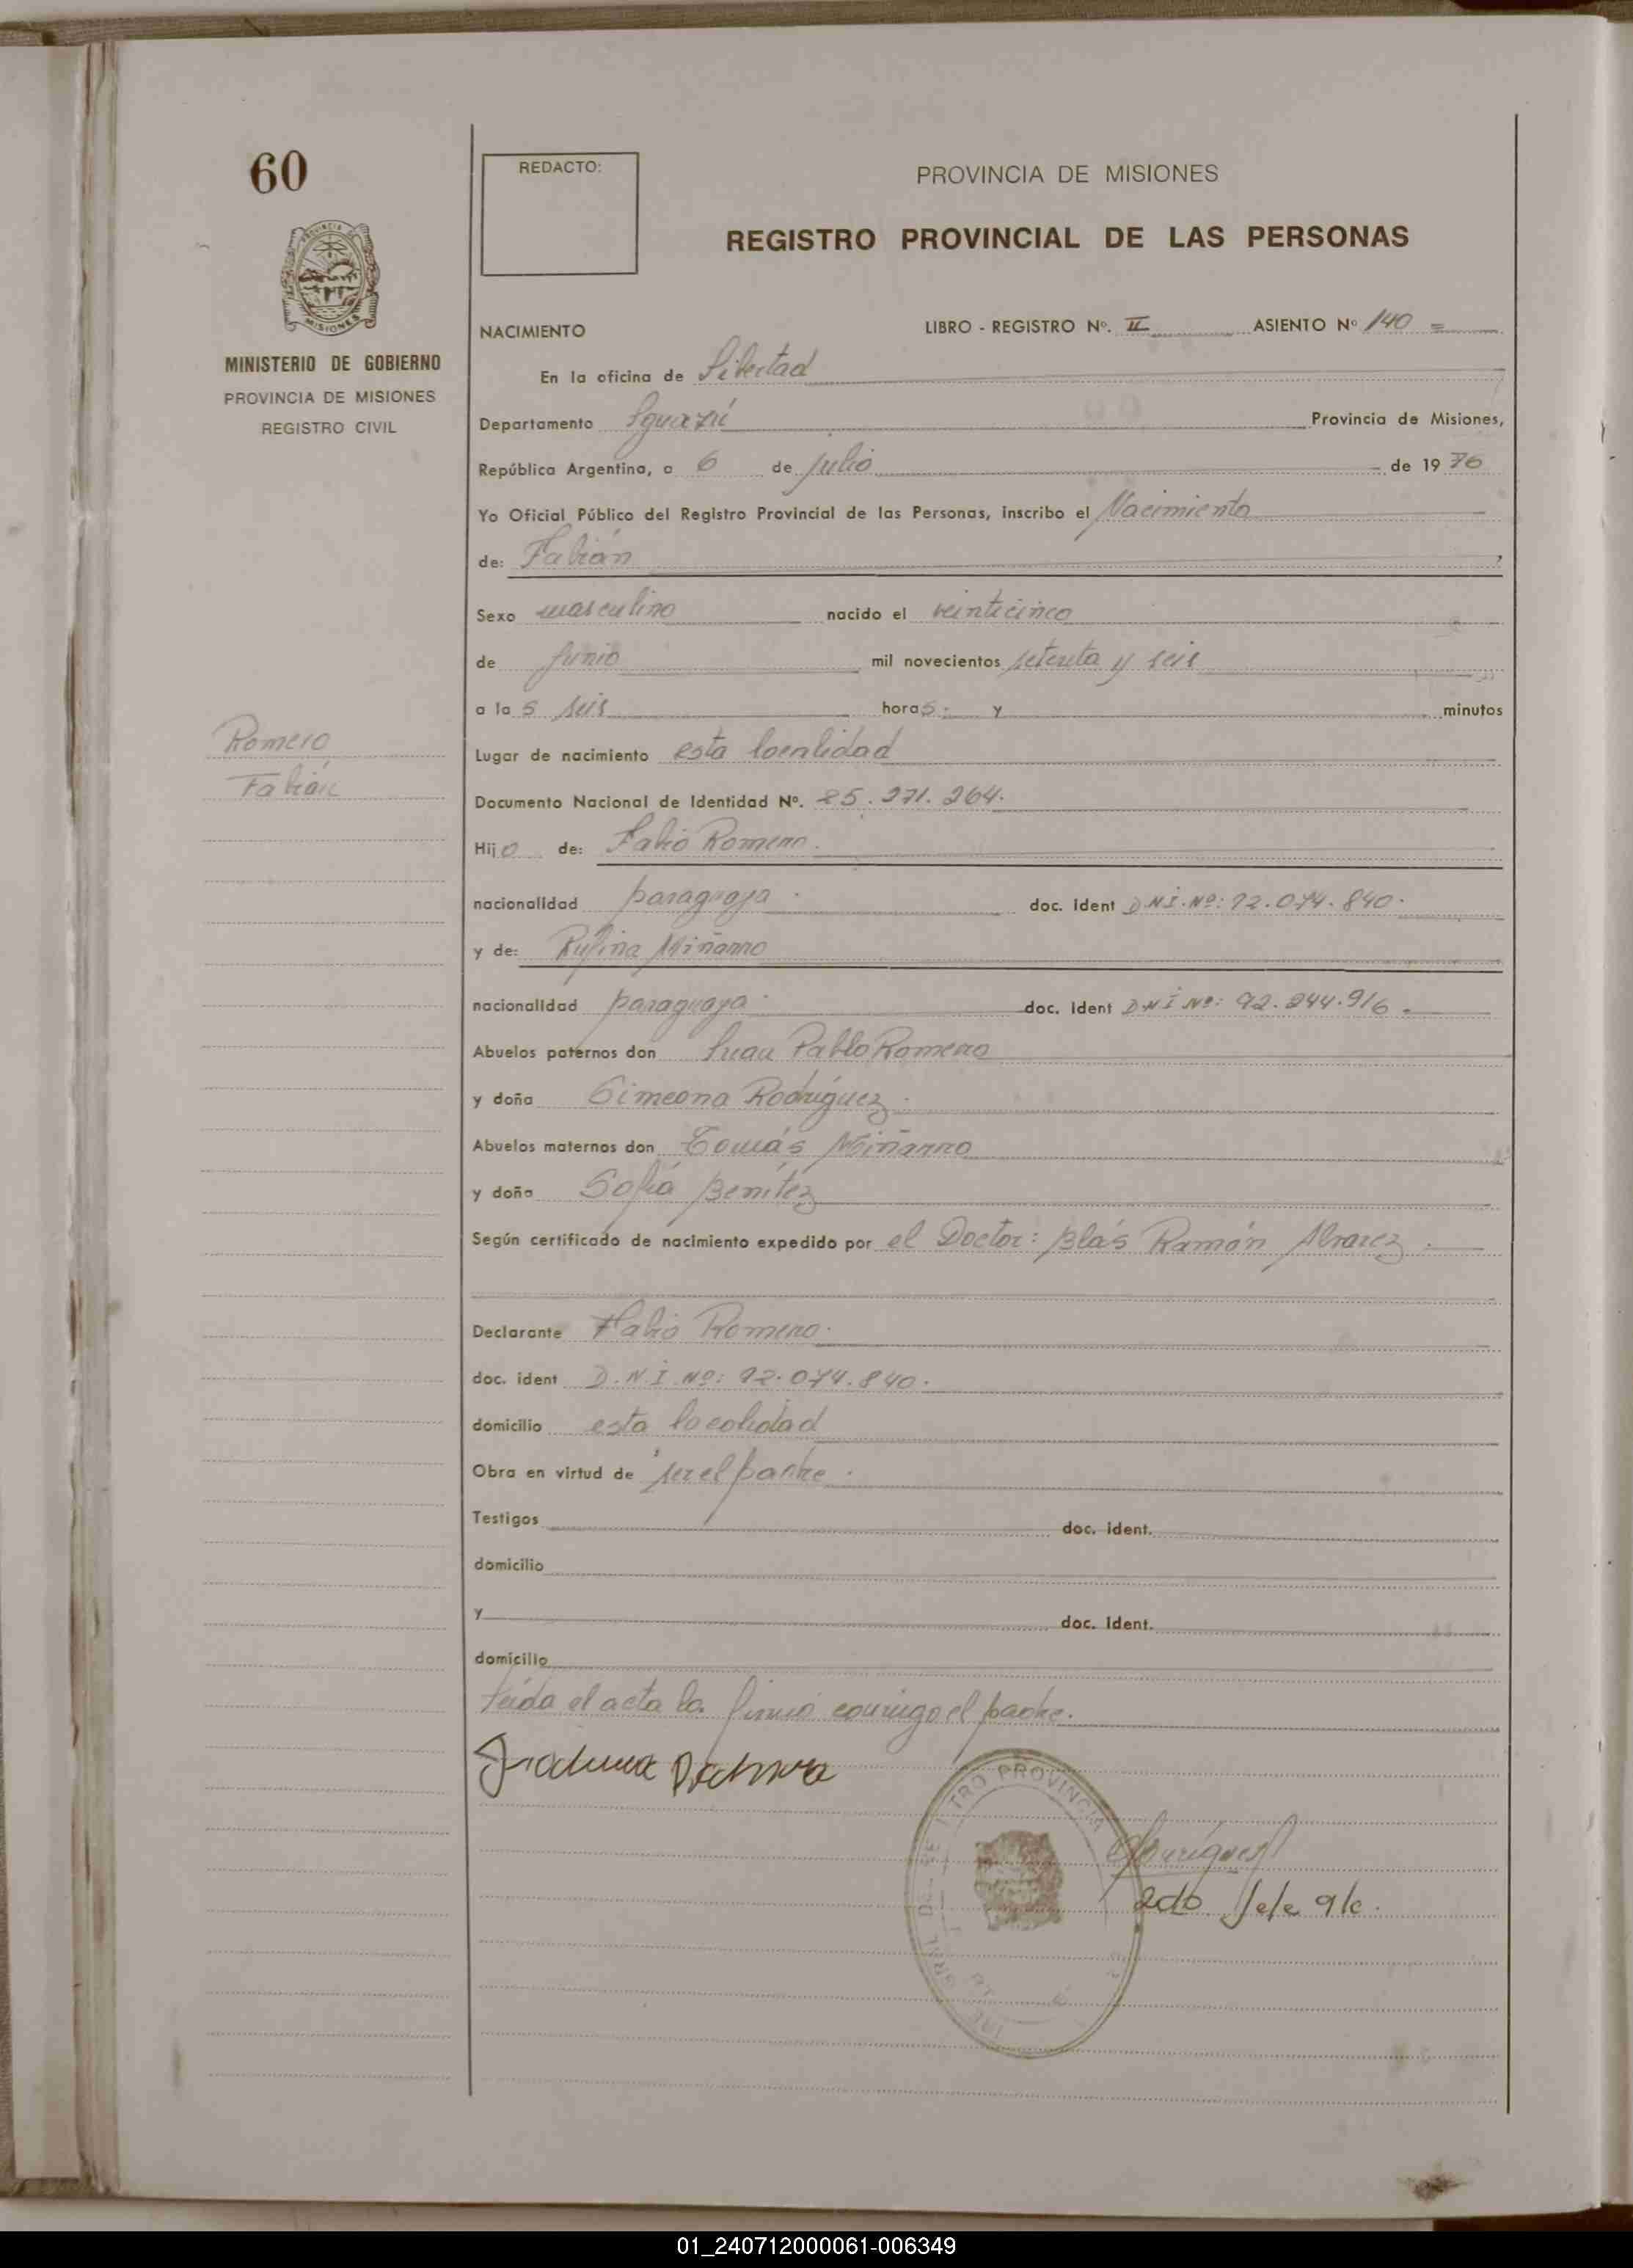 60
REDACTO:
PROVINCIA DE MISIONES
REGISTRO PROVINCIAL DE LAS PERSONAS
MISIONES
MINISTERIO DE GOBIERNO
PROVINCIA DE MISIONES
REGISTRO CIVIL
NACIMIENTO LIBRO - REGISTRO Nº. II ASIENTO Nº 140 =
En la oficina de Libertad
Departamento Iguazú Provincia de Misiones,
República Argentina, a 6 de julio de 1976
Yo Oficial Público del Registro Provincial de las Personas, inscribo el Nacimiento
de: Fabián
Sexo masculino nacido el veinticinco
de junio mil novecientos setenta y seis
a la s seis horas. y minutos
Romero
Fabián
Lugar de nacimiento esta localidad
Documento Nacional de Identidad Nº. 25.271.264.
Hijo de: Fabio Romero.
nacionalidad paraguaya. doc. ident DNI.Nº: 92.074.840.
y de: Rufina Miñarro
nacionalidad paraguaya. doc. ident DNI Nº: 92.244.916.
Abuelos paternos don Juan Pablo Romero
y doña Simeona Rodríguez.
Abuelos maternos don Tomás Miñarro
y doña Sofía Benítez
Según certificado de nacimiento expedido por el Doctor: Blás Ramón Alvarez.
Declarante Fabio Romero.
doc. ident D.N.I. Nº: 92.074.840.
domicilio esta localidad
Obra en virtud de ser el padre.
Testigos doc. ident.
domicilio
y doc. ident.
domicilio
Leída el acta la firmó conmigo el padre.
PROVINCIA
2do Jefe a/c.
01_240712000061-006349